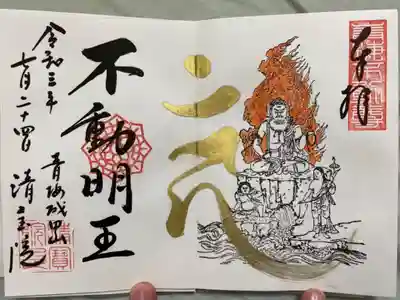 奉拝
不動明王
令和三年
七月二十四日
青梅成田山
清宝院